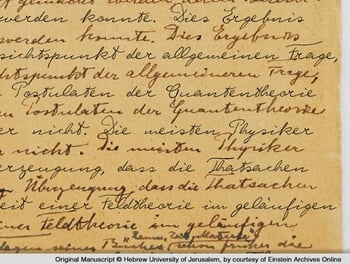 werden konnte. Dies Ergebnis
werden konnte. Dies Ergebnis
sichtspunkt der allgemeinen Frage,
htspunkt der allgemeineren Frage,
n Postulaten der Quantentheorie
n Postulaten der Quantentheorie
er nicht. Die meisten Physiker
r nicht. Die meisten Physiker
erzeugung, dass die Thatsachen
Überzeugung, dass die Thatsachen
eit einer Feldtheorie im geläufigen
einer Feldtheorie im geläufigen
die
Original Manuscript © Hebrew University of Jerusalem, by courtesy of Einstein Archives Online